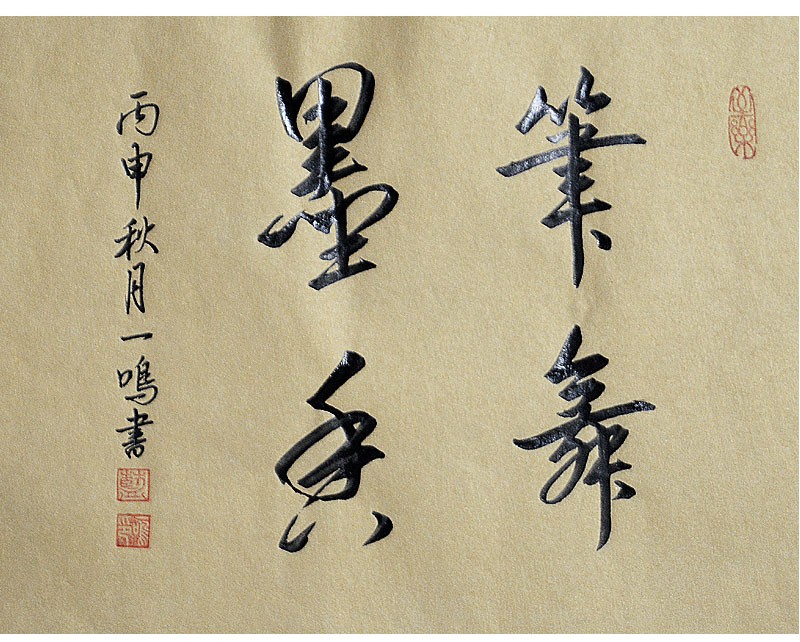 筆舞
墨香
丙申秋月一鳴书